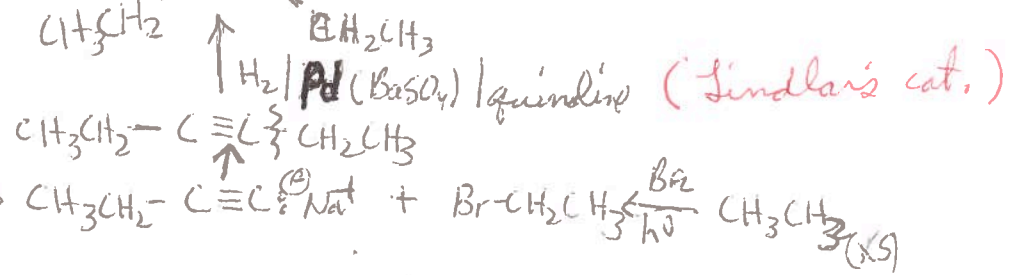 CH3CH2 CH2CH3
H2 | Pd (BaSO4) | quinoline (Lindlar's cat.)
CH3CH2 - C ≡ C CH2CH3
CH3CH2 - C ≡ C:⊖ Na+ + Br-CH2CH3 Br2 hν CH3CH3 (XS)